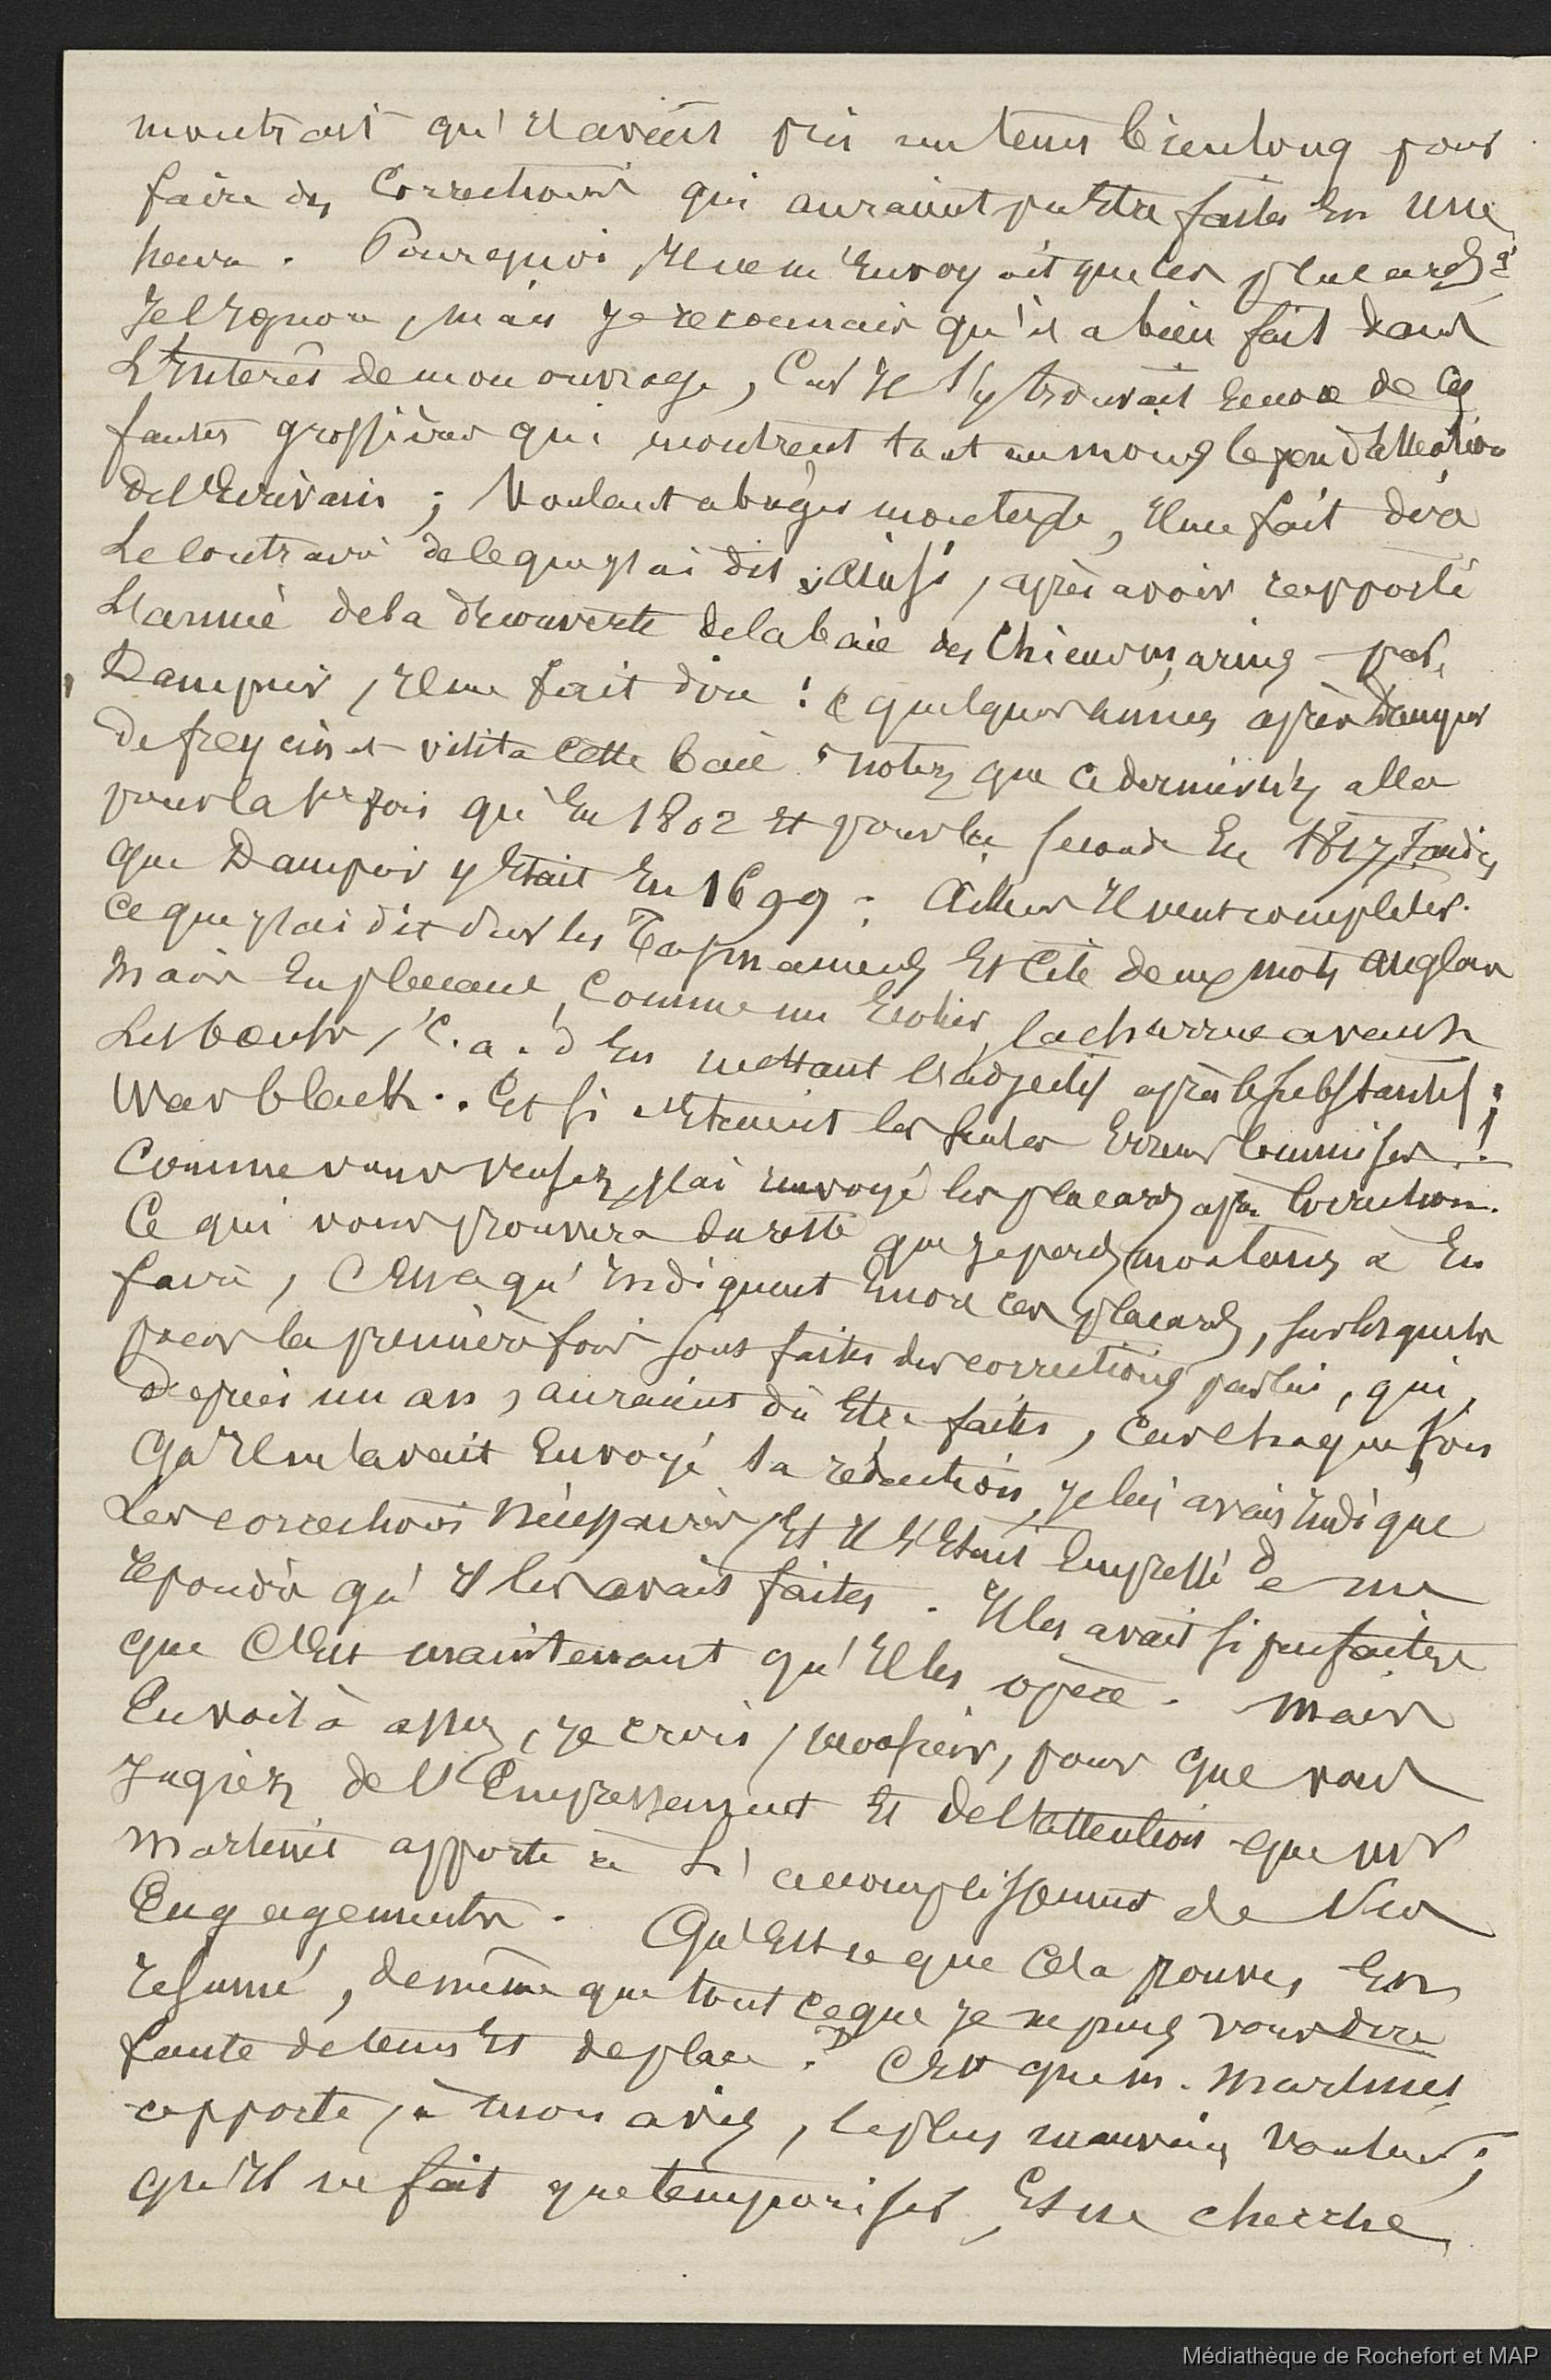 montrait qu'il avait pris un tems bien long pour
faire des Corrections qui auraient pu Etre faites En Une
heure. Pourquoi Il ne m'Envoyait que les placards?
Je l'Ignore, mais Je reconnais qu'il a bien fait dans
L'Interêt de mon ouvrage, Car Il s'y trouvait Encore de Ces
fautes grossières qui montrent tout au moins le peu d'attention
de l'Ecrivain; Voulant abréger mon texte, Il me fait dire
Le Contraire de ce que J'ai dit; Ainsi, après avoir rapporté
L'année de la découverte de la baie des Chiens marins par
Dampier, Il me fait dire: "quelques années après Dampier
de freycinet visita Cette baie" notez que Ce dernier n'y alla
pour la 1re fois qu'En 1802 Et pour la seconde En 1817, tandis
que Dampier y Etait En 1699. Ailleurs Il veut compléter
Ce que J'ai dit sur les Tasmaniens Et Cite deux mots anglais
mais En plaçant, Comme un Ecolier, la charrue avant
Les boeufs, C.a.d En mettant l'adjectif après le substantif;
War black.. Et si C'Etaient les seules Erreurs Commises!
Comme vous pensez, J'ai renvoyé les placards après Correction.
Ce qui vous prouvera du reste que Je perds mon tems à En
faire, C'Est ce qu'Indiquent Encore ces placards, sur lesquels
pour la première fois sont faites des corrections par lui, qui,
Depuis un an, auraient dû Etre faites, Car chaque fois
qu'Il m'avait Envoyé sa rédaction, Je lui avais Indiqué
Les corrections nécessaires, Et Il s'Etait Empressé de me
répondre qu'Il les avait faites. Il les avait si peu faites
que C'Est maintenant qu'Il les opère. Mais
En voilà assez, Je crois, Monsieur, pour que vous
Jugiez de l'Empressement Et de l'attention que Mr
Martinet apporte à L'accomplissement de Ses
Engagements. Qu'Est ce que Cela prouve, En
résumé, de même que tout ce que Je ne puis vous dire
faute de tems Et de place? C'Est que M. Martinet
apporte, à mon avis, le plus mauvais vouloir;
qu'Il ne fait que temporiser, Et ne cherche
Médiathèque de Rochefort et MAP